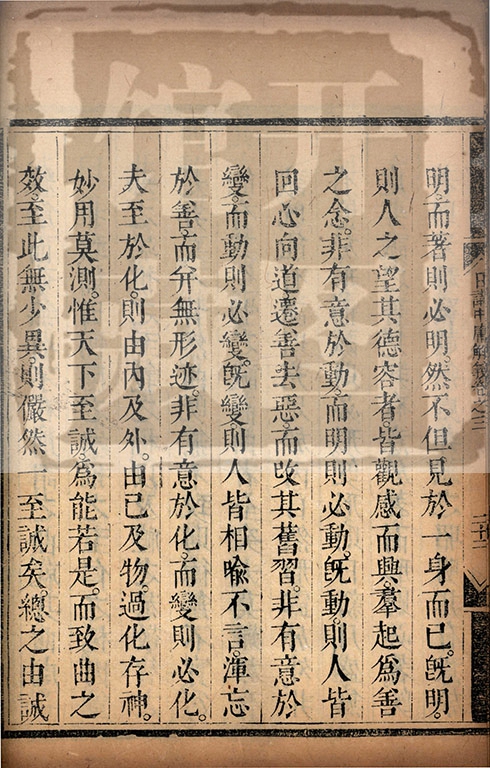 明。而著則必明。然不但見於一身而已。旣明。
則人之望其德容者。皆觀感而興。羣起爲善
之念。非有意於動。而明則必動。旣動。則人皆
回心向道。遷善去惡。而改其舊習。非有意於
變。而動則必變。旣變。則人皆相喩不言。渾忘
於善。而弁無形迹。非有意於化。而變則必化。
夫至於化。則由內及外。由已及物。過化存神。
妙用莫測。惟天下至誠。爲能若是。而致曲之
效。至此無少異。則儼然一至誠矣。總之由誠